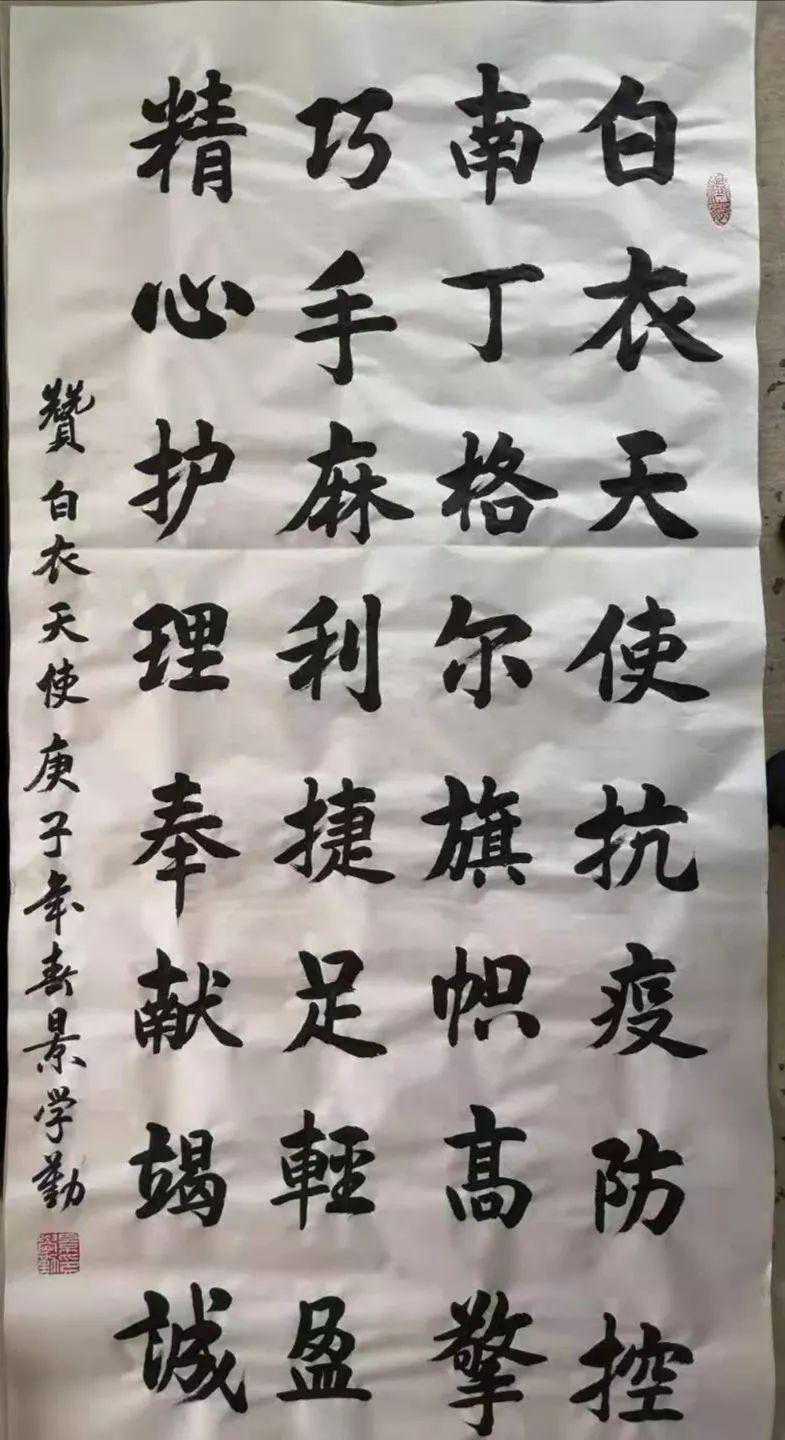 白衣天使抗疫防控
南丁格尔旗帜高擎
巧手麻利捷足輕盈
精心护理奉献竭誠
贊白衣天使庚子年春景学勤